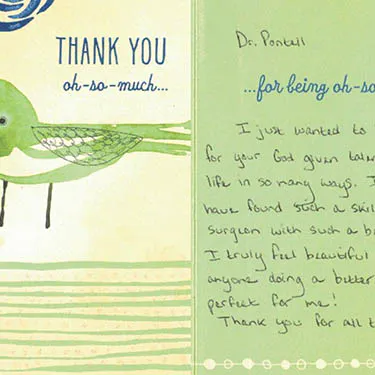 THANK YOU
oh-so-much...
Dr. Pontell
...for being oh-so
I just wanted to
for your God given talen
life in so many ways. I
have found such a skil
surgeon with such a b
I truly feel beautiful
anyone doing a better
perfect for me!
Thank you for all t